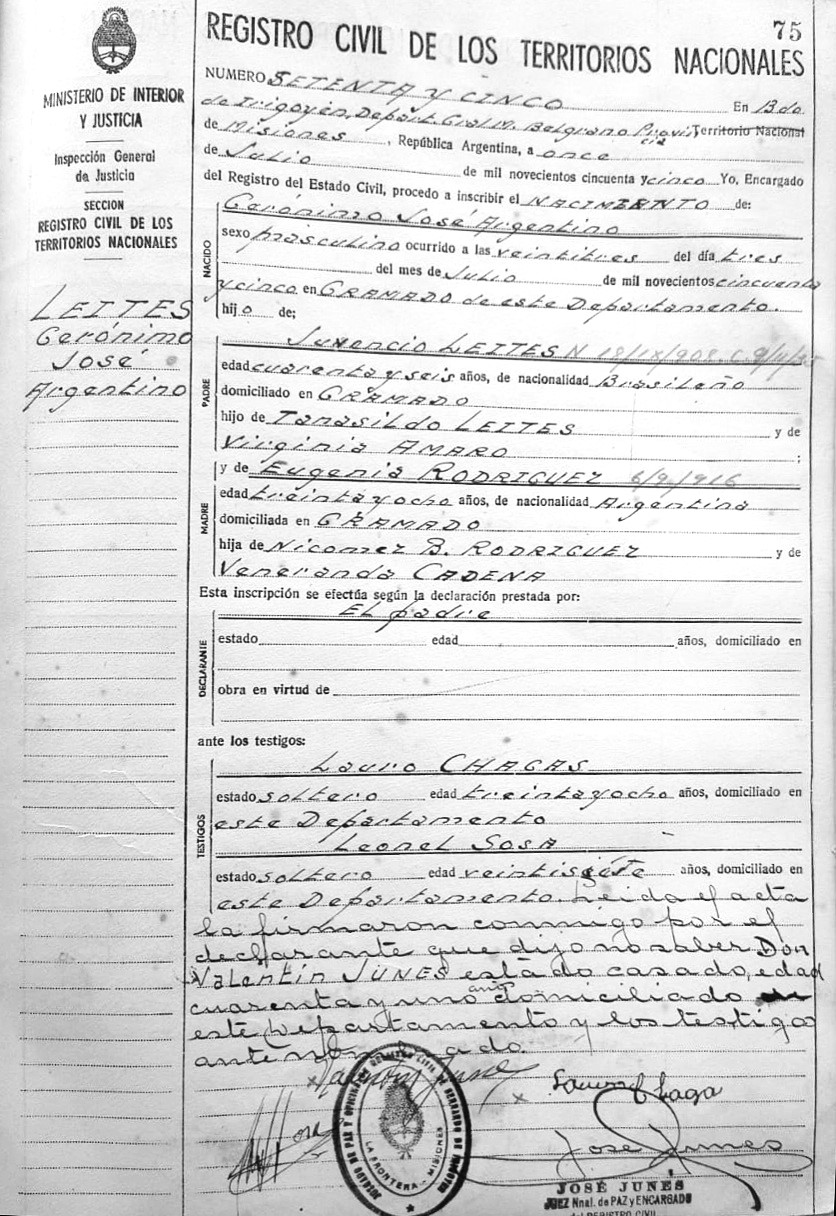 75
REGISTRO CIVIL DE LOS TERRITORIOS NACIONALES
MINISTERIO DE INTERIOR
Y JUSTICIA
Inspección General
de Justicia
SECCION
REGISTRO CIVIL DE LOS
TERRITORIOS NACIONALES
LEITES
Gerónimo
José
Argentino
NUMERO SETENTA y CINCO En Bdo.
de Irigoyen, Depart. Gral. M. Belgrano Provincia Territorio Nacional
de Misiones, República Argentina, a once
de Julio de mil novecientos cincuenta y cinco Yo, Encargado
del Registro del Estado Civil, procedo a inscribir el NACIMIENTO de:
NACIDO
Gerónimo José Argentino
sexo masculino ocurrido a las veintitres del día tres
del mes de Julio de mil novecientos cincuenta
y cinco en GRAMADO de este Departamento.
hijo de;
PADRE
Juvencio LEITES N 18/IX/908
edad cuarenta y seis años, de nacionalidad Brasileño
domiciliado en GRAMADO
hijo de Tanasildo LEITES y de
Virginia AMARO ;
MADRE
y de Eugenia RODRIGUEZ 6/9/916
edad treinta y ocho años, de nacionalidad Argentina
domiciliada en GRAMADO
hija de Nicomez B. RODRIGUEZ y de
Veneranda CADENA
Esta inscripción se efectúa según la declaración prestada por:
DECLARANTE
El padre
estado edad años, domiciliado en
obra en virtud de
ante los testigos:
TESTIGOS
Lauro CHAGAS
estado soltero edad treinta y ocho años, domiciliado en
este Departamento
Leonel SOSA
estado soltero edad veintisiete años, domiciliado en
este Departamento. Leida el acta
la firmaron conmigo por el
declarante que dijo no saber Don
Valentin JUNES estado casado, edad
cuarenta y uno años domiciliado
este Departamento y los testigo
ante nombrado.
JUZGADO DE PAZ Y OFICINA DE REGISTRO CIVIL DE BERNARDO DE IRIGOYEN
LA FRONTERA - MISIONES
José Junes
JOSÉ JUNES
JUEZ Nnal. de PAZ y ENCARGADO
del REGISTRO CIVIL